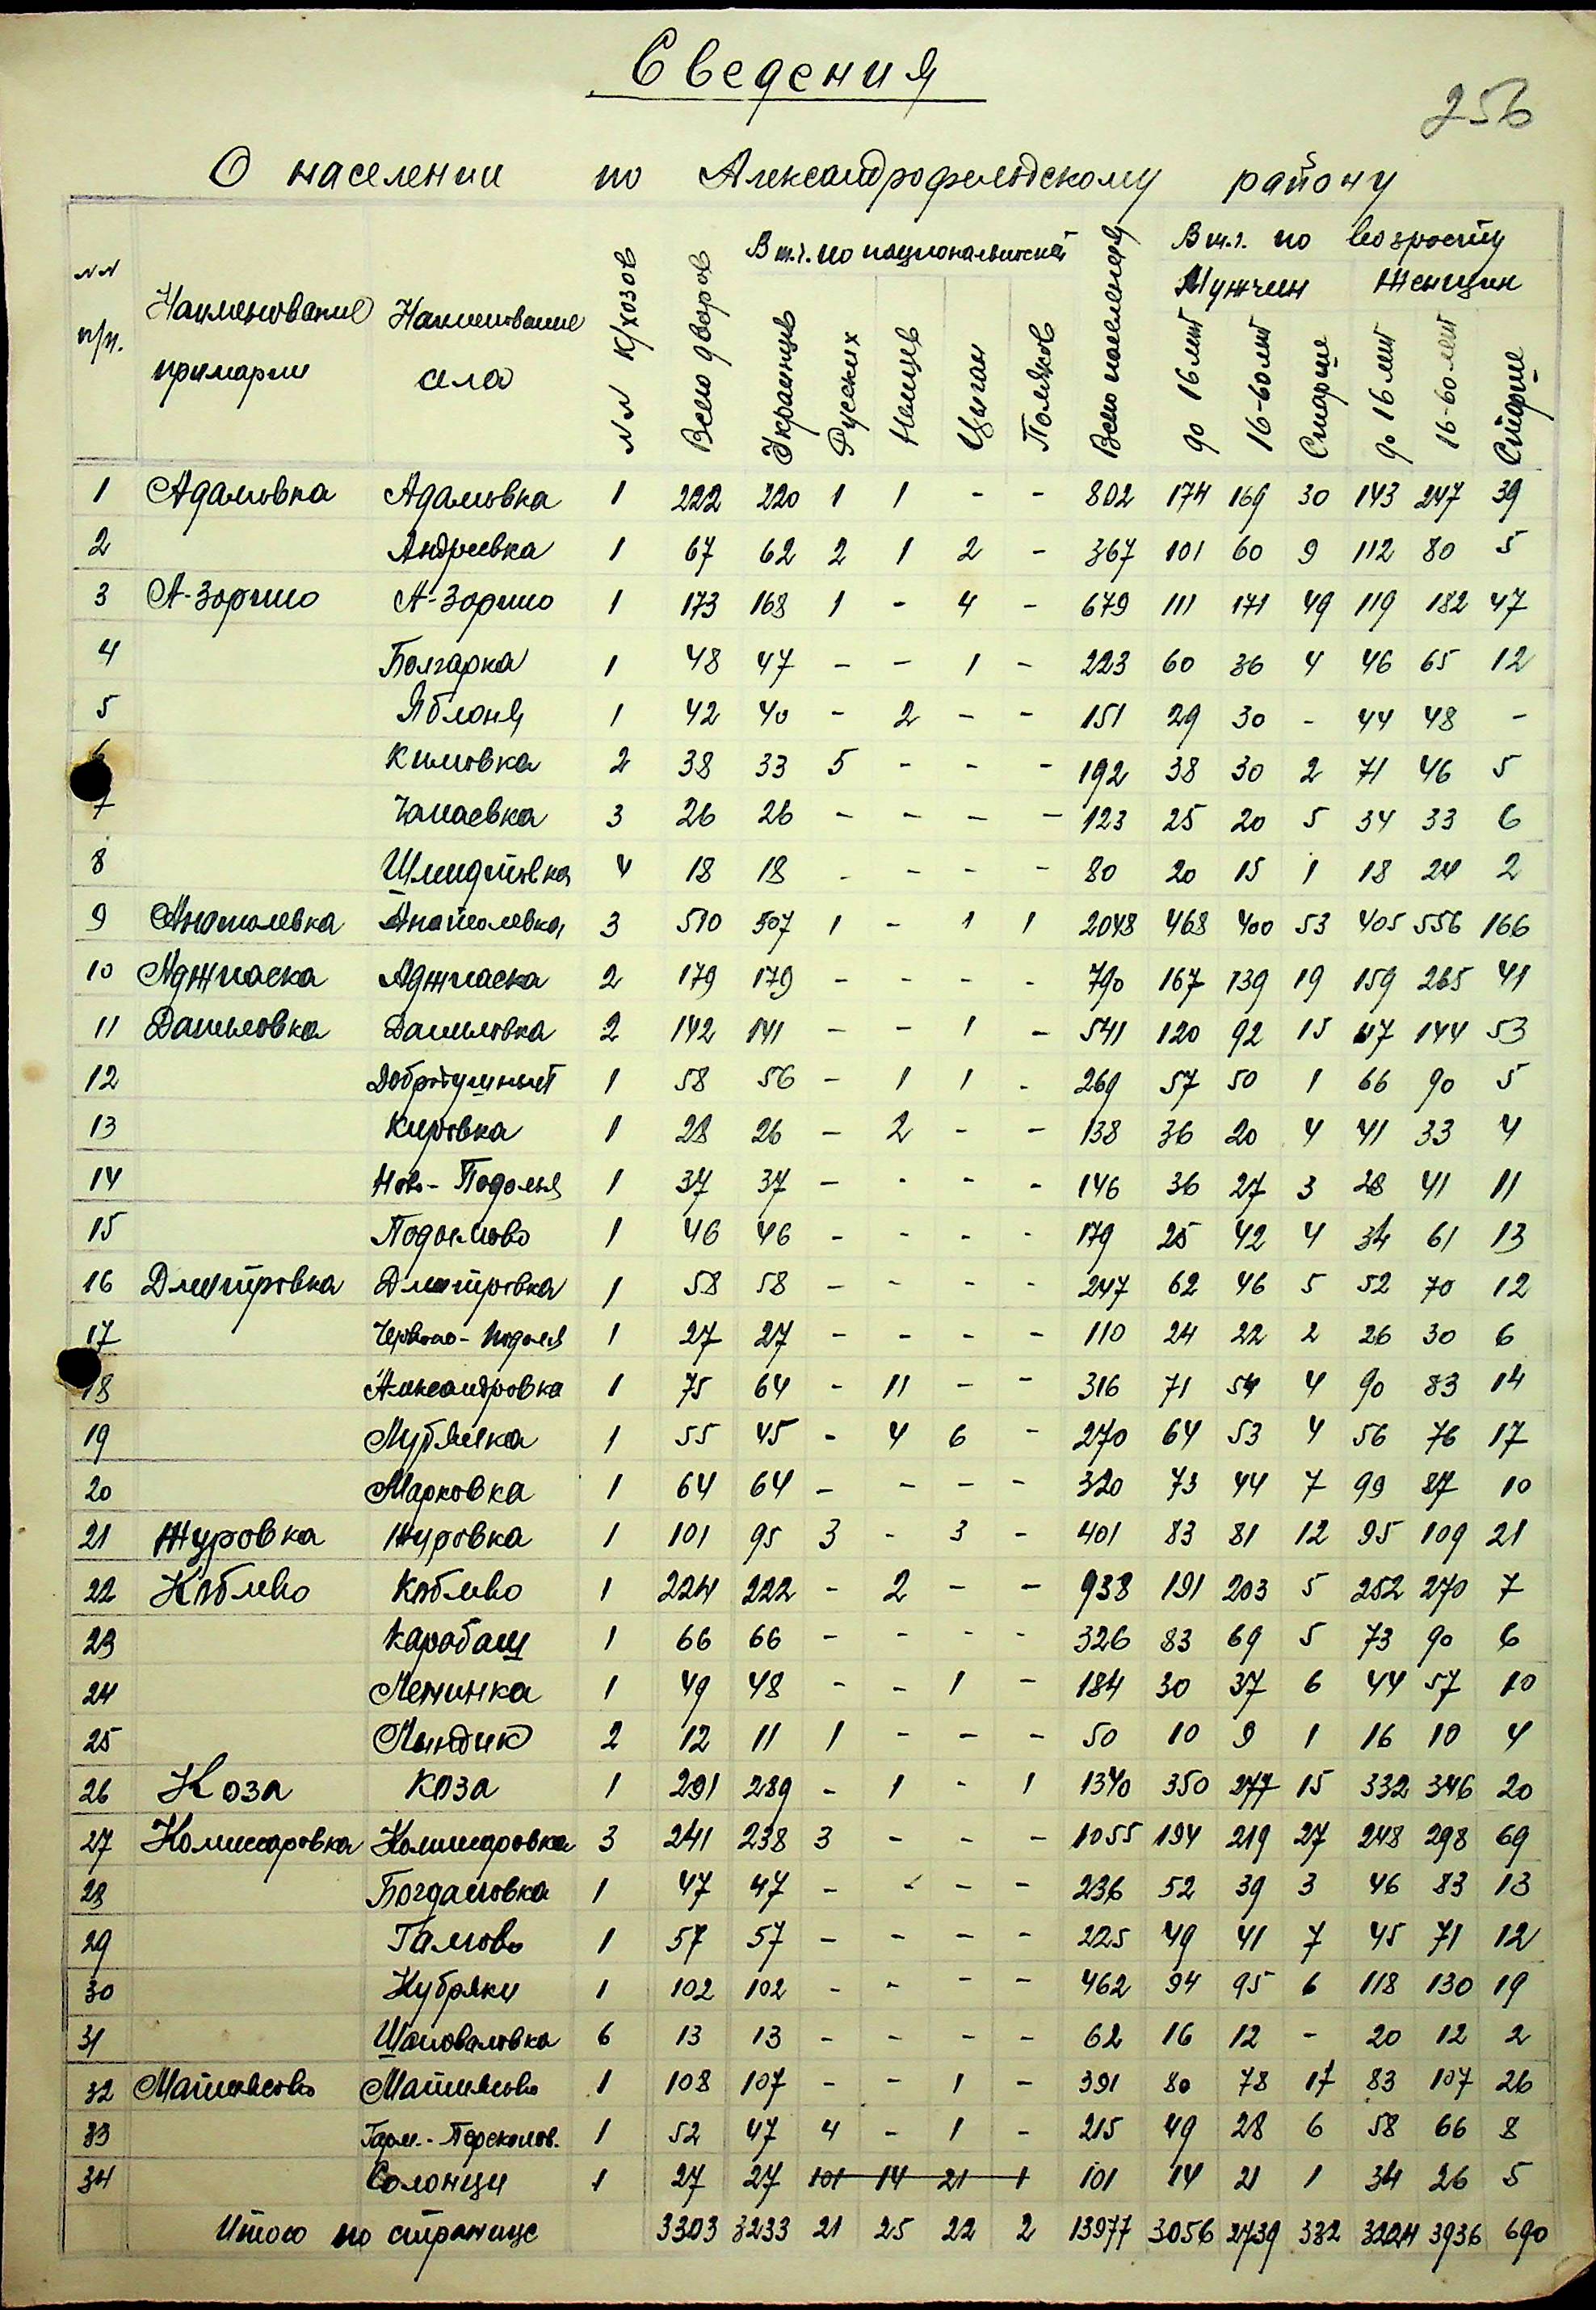 Сведения
256
О населении по Александрофельдскому району
NN п/п. Наименование примарии Наименование села NN к/хозов Всего дворов В т.ч. по национальностей Всего населения В т.ч. по возрасту
Мужчин Женщин
Украинцев Русских Немцев Цыган Поляков до 16 лет 16-60 лет Старше до 16 лет 16-60 лет Старше
1 Адамовка Адамовка 1 222 220 1 1 - - 802 174 169 30 143 247 39
2 Андреевка 1 67 62 2 1 2 - 367 101 60 9 112 80 5
3 А-Зоргино А-Зоргино 1 173 168 1 - 4 - 679 111 171 49 119 182 47
4 Болгарка 1 48 47 - - 1 - 223 60 36 4 46 65 12
5 Яблоня 1 42 40 - 2 - - 151 29 30 - 44 48 -
6 Кимовка 2 38 33 5 - - - 192 38 30 2 71 46 5
7 Чапаевка 3 26 26 - - - - 123 25 20 5 34 33 6
8 Шмидтовка 4 18 18 - - - - 80 20 15 1 18 24 2
9 Анатолевка Анатолевка 3 510 507 1 - 1 1 2048 468 400 53 405 556 166
10 Аджиаска Аджиаска 2 179 179 - - - - 790 167 139 19 159 265 41
11 Даниловка Даниловка 2 142 141 - - 1 - 541 120 92 15 117 144 53
12 Добродушный 1 58 56 - 1 1 - 269 57 50 1 66 90 5
13 Кировка 1 28 26 - 2 - - 138 36 20 4 41 33 4
14 Ново-Подолья 1 37 37 - - - - 146 36 27 3 28 41 11
15 1 46 46 - - - - 179 25 42 4 34 61 13
16 Дмитровка Дмитровка 1 58 58 - - - - 247 62 46 5 52 70 12
17 Червоно-Подоля 1 27 27 - - - - 110 24 22 2 26 30 6
18 Александровка 1 75 64 - 11 - - 316 71 54 4 90 83 14
19 Лубянка 1 55 45 - 4 6 - 270 64 53 4 56 76 17
20 Марковка 1 64 64 - - - - 320 73 44 7 99 87 10
21 Журовка Журовка 1 101 95 3 - 3 - 401 83 81 12 95 109 21
22 Коблево Коблево 1 224 222 - 2 - - 938 191 203 5 252 270 7
23 Карабаш 1 66 66 - - - - 326 83 69 5 73 90 6
24 Ленинка 1 49 48 - - 1 - 184 30 37 6 44 57 10
25 2 12 11 1 - - - 50 10 9 1 16 10 4
26 Коза Коза 1 291 289 - 1 - 1 1340 350 277 15 332 346 20
27 Комиссаровка Комисаровка 3 241 238 3 - - - 1055 194 219 27 248 298 69
28 Богдановка 1 47 47 - - - - 236 52 39 3 46 83 13
29 1 57 57 - - - - 225 49 41 7 45 71 12
30 Кубряки 1 102 102 - - - - 462 94 95 6 118 130 19
31 Шаповаловка 6 13 13 - - - - 62 16 12 - 20 12 2
32 Матиясово Матиясово 1 108 107 - - 1 - 391 80 78 17 83 107 26
33 1 52 47 4 - 1 - 215 49 28 6 58 66 8
34 Солонци 1 27 27 101 14 21 1 101 14 21 1 34 26 5
Итого по странице 3303 3233 21 25 22 2 13977 3056 2739 332 3224 3936 690